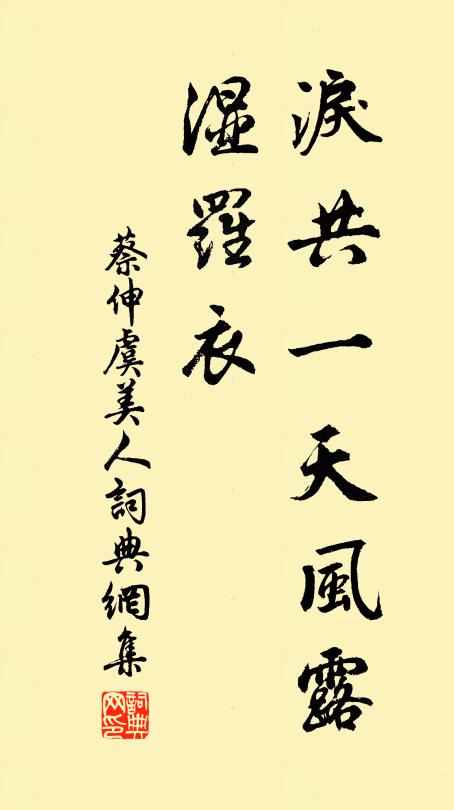 淚共一天風露
濕羅衣
蔡伸虞美人詞典網集
詞典网印